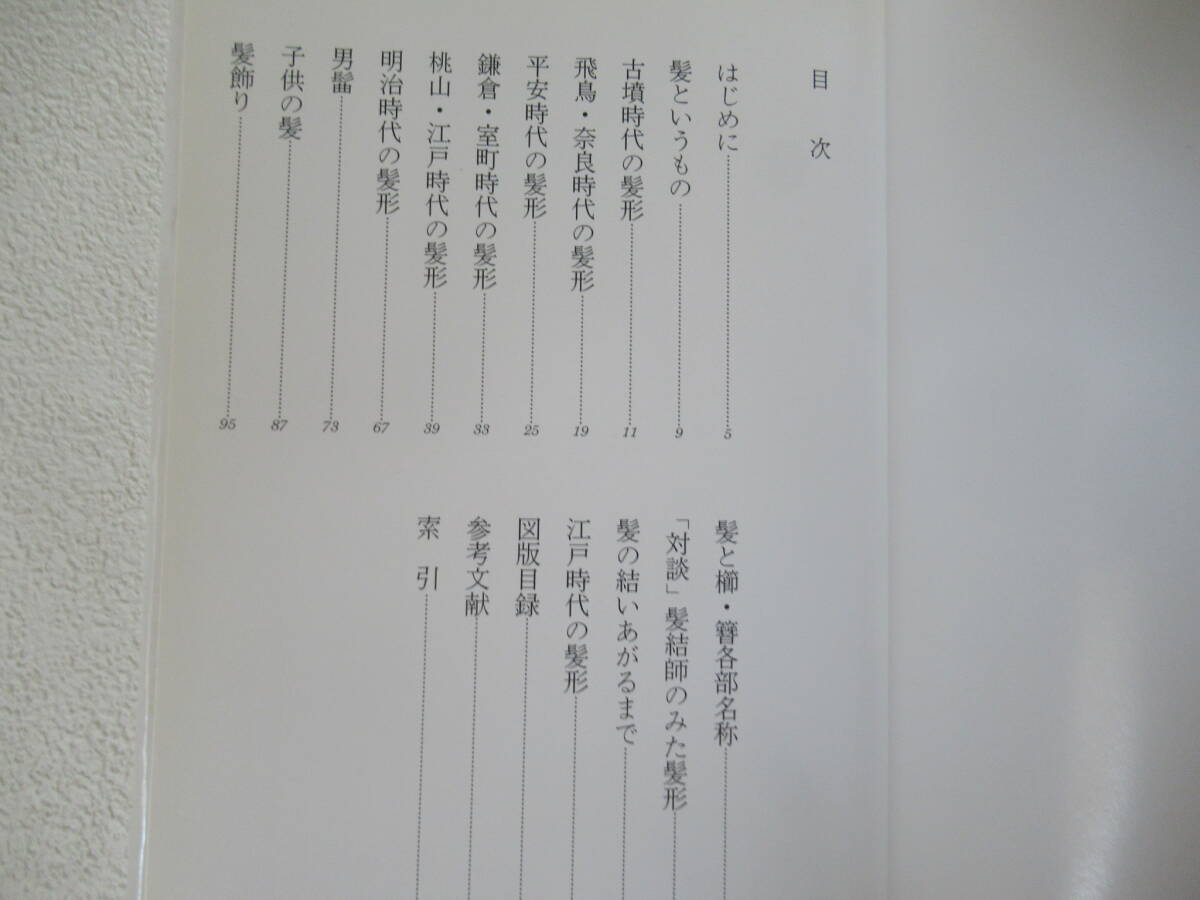 目次
はじめに 5
髪というもの 9
古墳時代の髪形 11
飛鳥・奈良時代の髪形 19
平安時代の髪形 25
鎌倉・室町時代の髪形 33
桃山・江戸時代の髪形 39
明治時代の髪形 67
男髷 73
子供の髪 87
髪飾り 95
髪と櫛・簪各部名称
「対談」髪結師のみた髪形
髪の結いあがるまで
江戸時代の髪形
図版目録
参考文献
索引